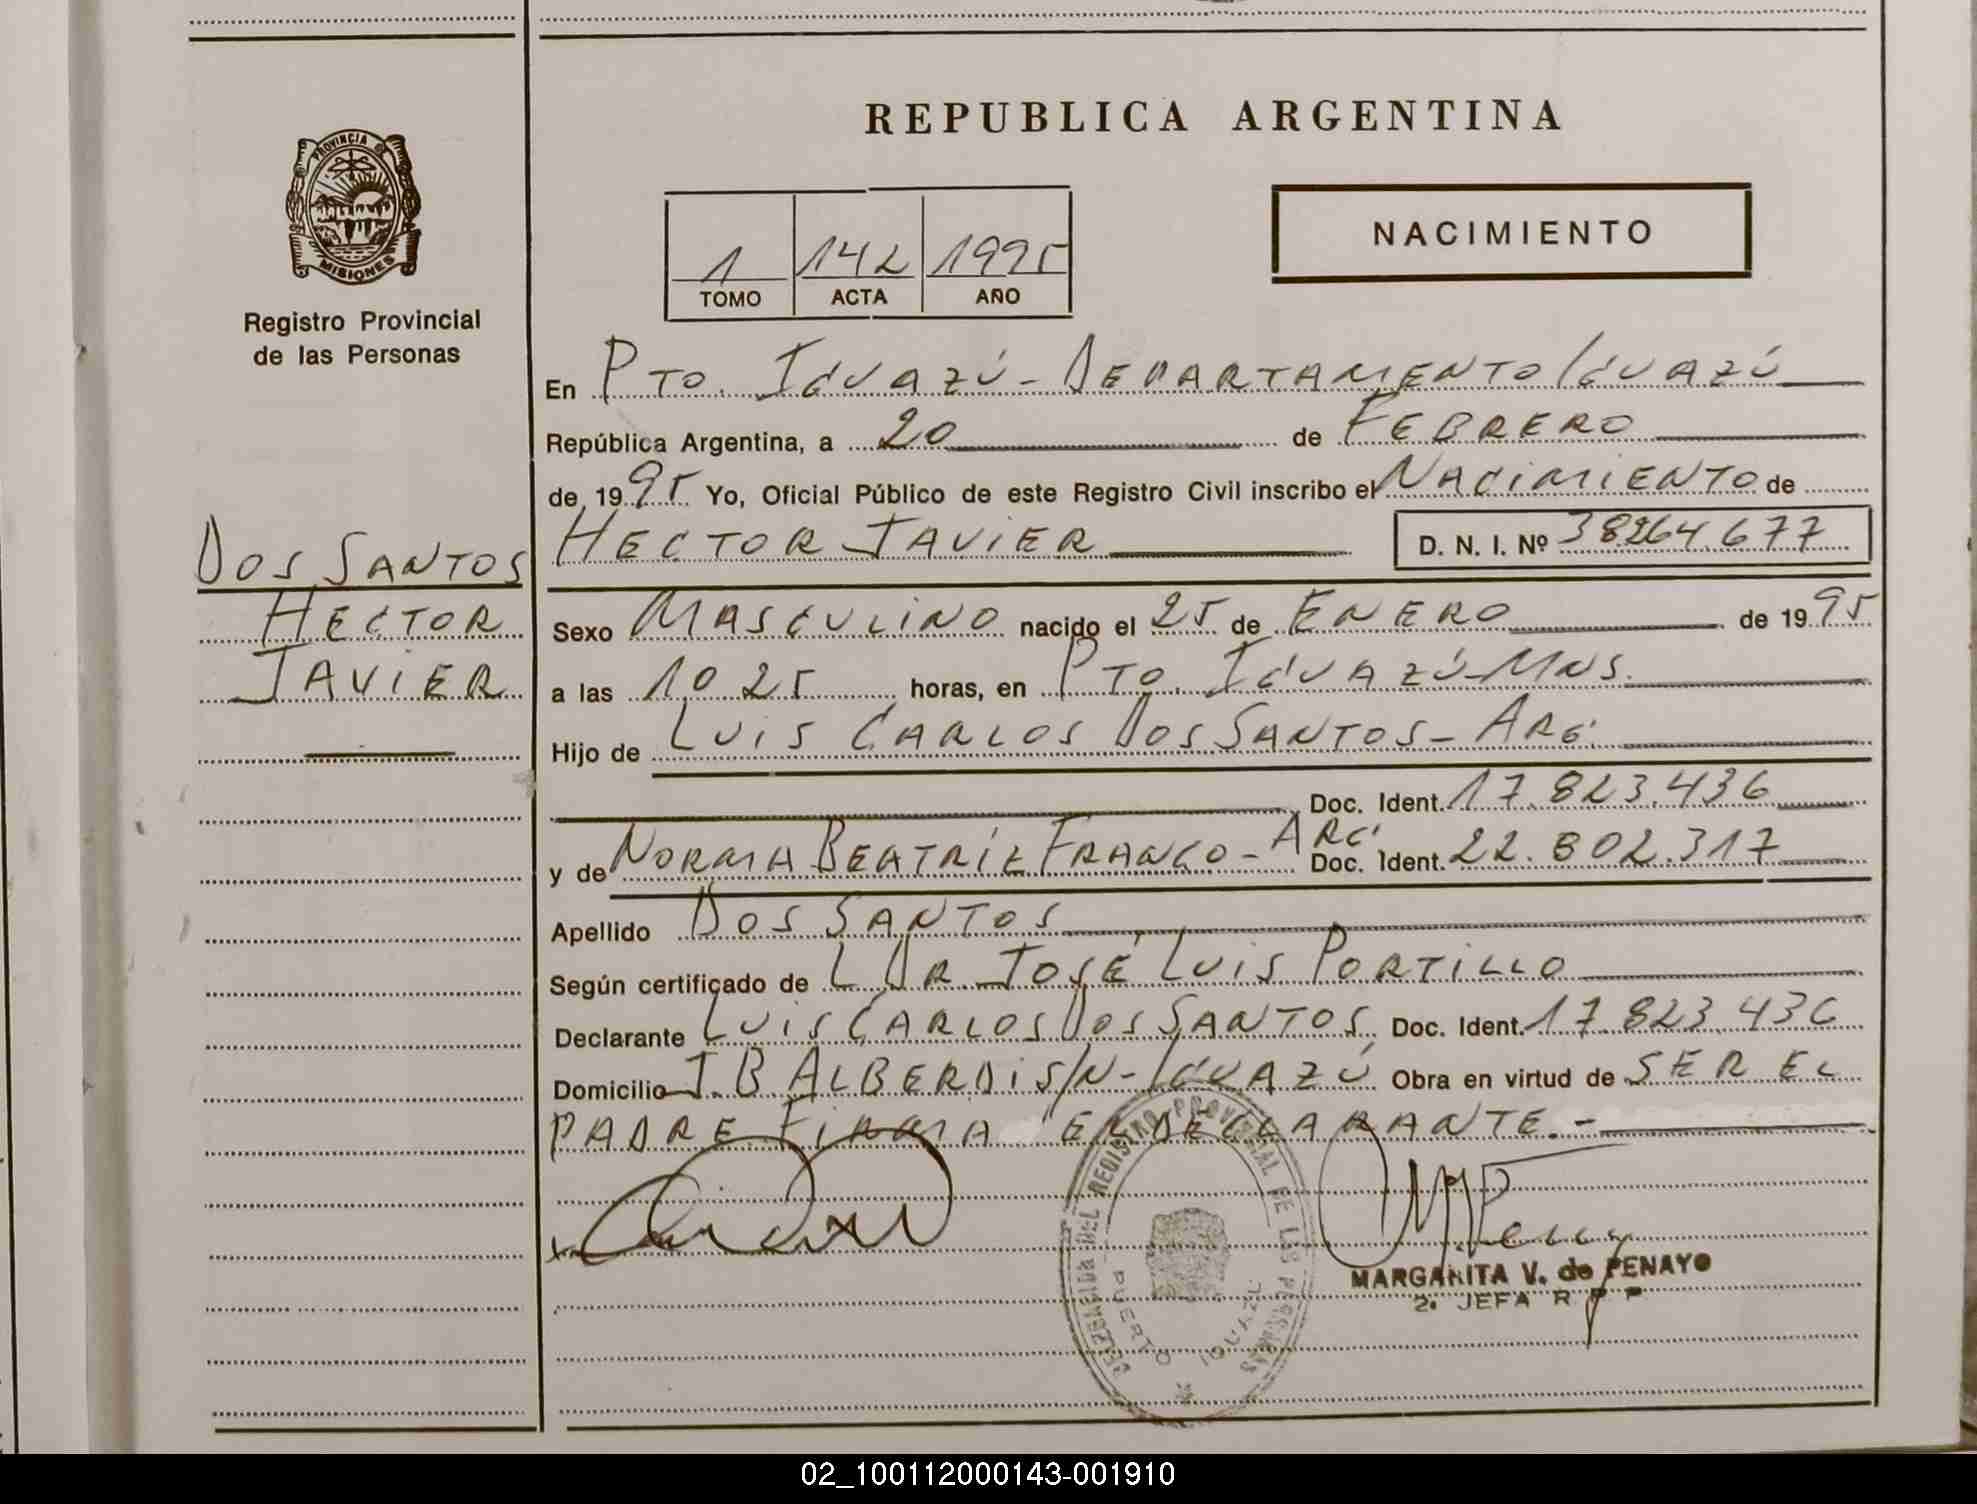 REPUBLICA ARGENTINA
PROVINCIA DE
MISIONES
Registro Provincial
de las Personas
1 142 1995
TOMO ACTA AÑO
NACIMIENTO
En PTO. IGUAZÚ - DEPARTAMENTO IGUAZÚ
República Argentina, a 20 de FEBRERO
de 1995 Yo, Oficial Público de este Registro Civil inscribo el NACIMIENTO de
HECTOR JAVIER D. N. I. Nº 38264.677
DOS SANTOS
HECTOR
JAVIER
Sexo MASCULINO nacido el 25 de ENERO de 1995
a las 10 25 horas, en PTO. IGUAZÚ-MNS.
Hijo de LUIS CARLOS DOS SANTOS - ARG.
Doc. Ident. 17.823.436
y de NORMA BEATRÍZ FRANCO - ARG. Doc. Ident. 22.802.317
Apellido DOS SANTOS
Según certificado de L DR. JOSÉ LUIS PORTILLO
Declarante LUIS CARLOS DOS SANTOS Doc. Ident. 17.823.436
Domicilio J.B ALBERDI S/N - IGUAZÚ Obra en virtud de SER EL
PADRE FIRMA EL DECLARANTE.-
DELEGACION DEL REGISTRO PROVINCIAL DE LAS PERSONAS
PUERTO IGUAZU
MARGARITA V. de PENAYO
2ª JEFA R P P
02_100112000143-001910